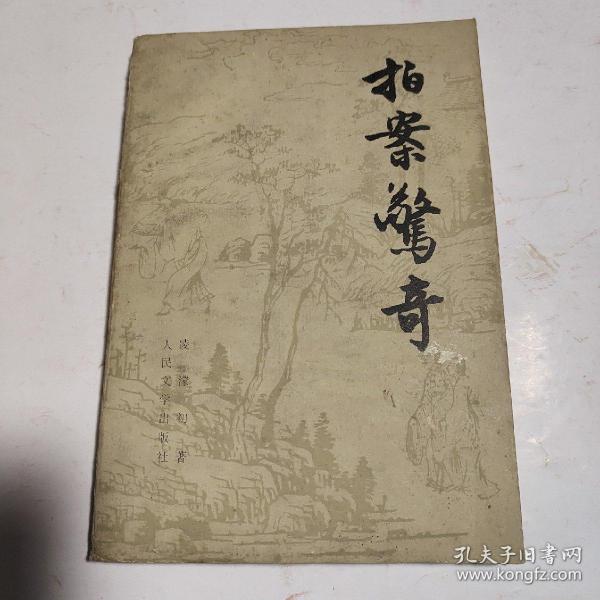 拍案驚奇
凌濛初 著
人民文学出版社
孔夫子旧书网
www.kongfz.com